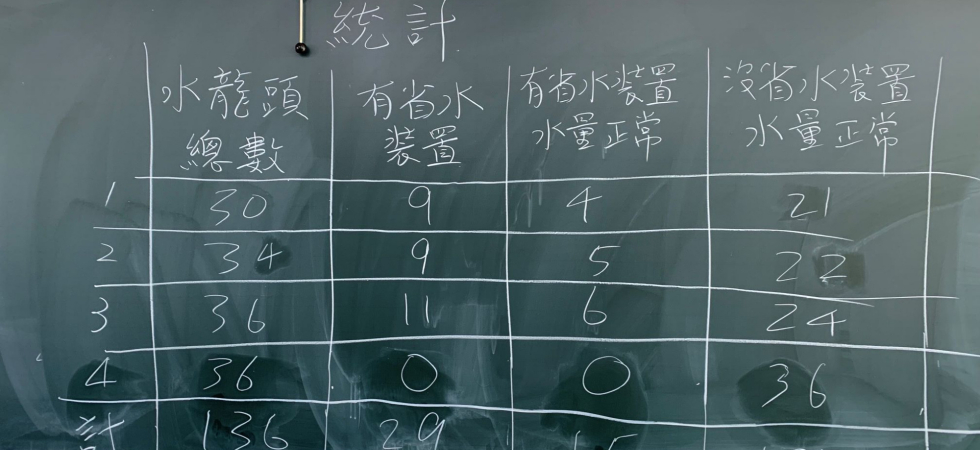 統計
水龍頭 有省水 有省水裝置 沒省水裝置
總數 裝置 水量正常 水量正常
1 30 9 4 21
2 34 9 5 22
3 36 11 6 24
4 36 0 0 36
計 136 29